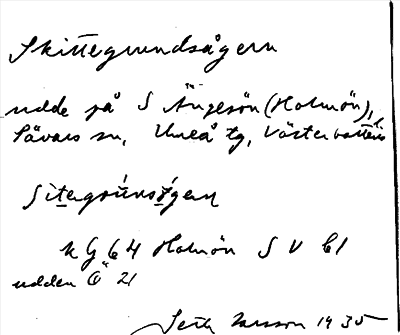 Skittegrundsågern
udde på S Ängesön (Holmön),
Sävars sn, Umeå tg, Västerbottens l.
Sitegrúnsógen
k G 64 Holmön S V 61
udden Ö 21
1935